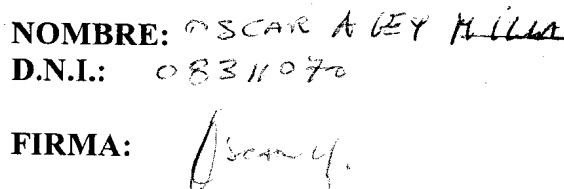 NOMBRE: OSCAR A LEY MILLA
D.N.I.: 08311070
FIRMA: Oscar y.